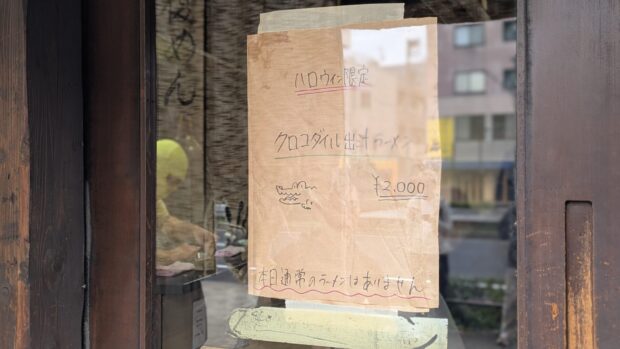 ハロウィン限定
クロコダイル出汁ラーメン
¥2,000
本日通常のラーメンはありません
めん